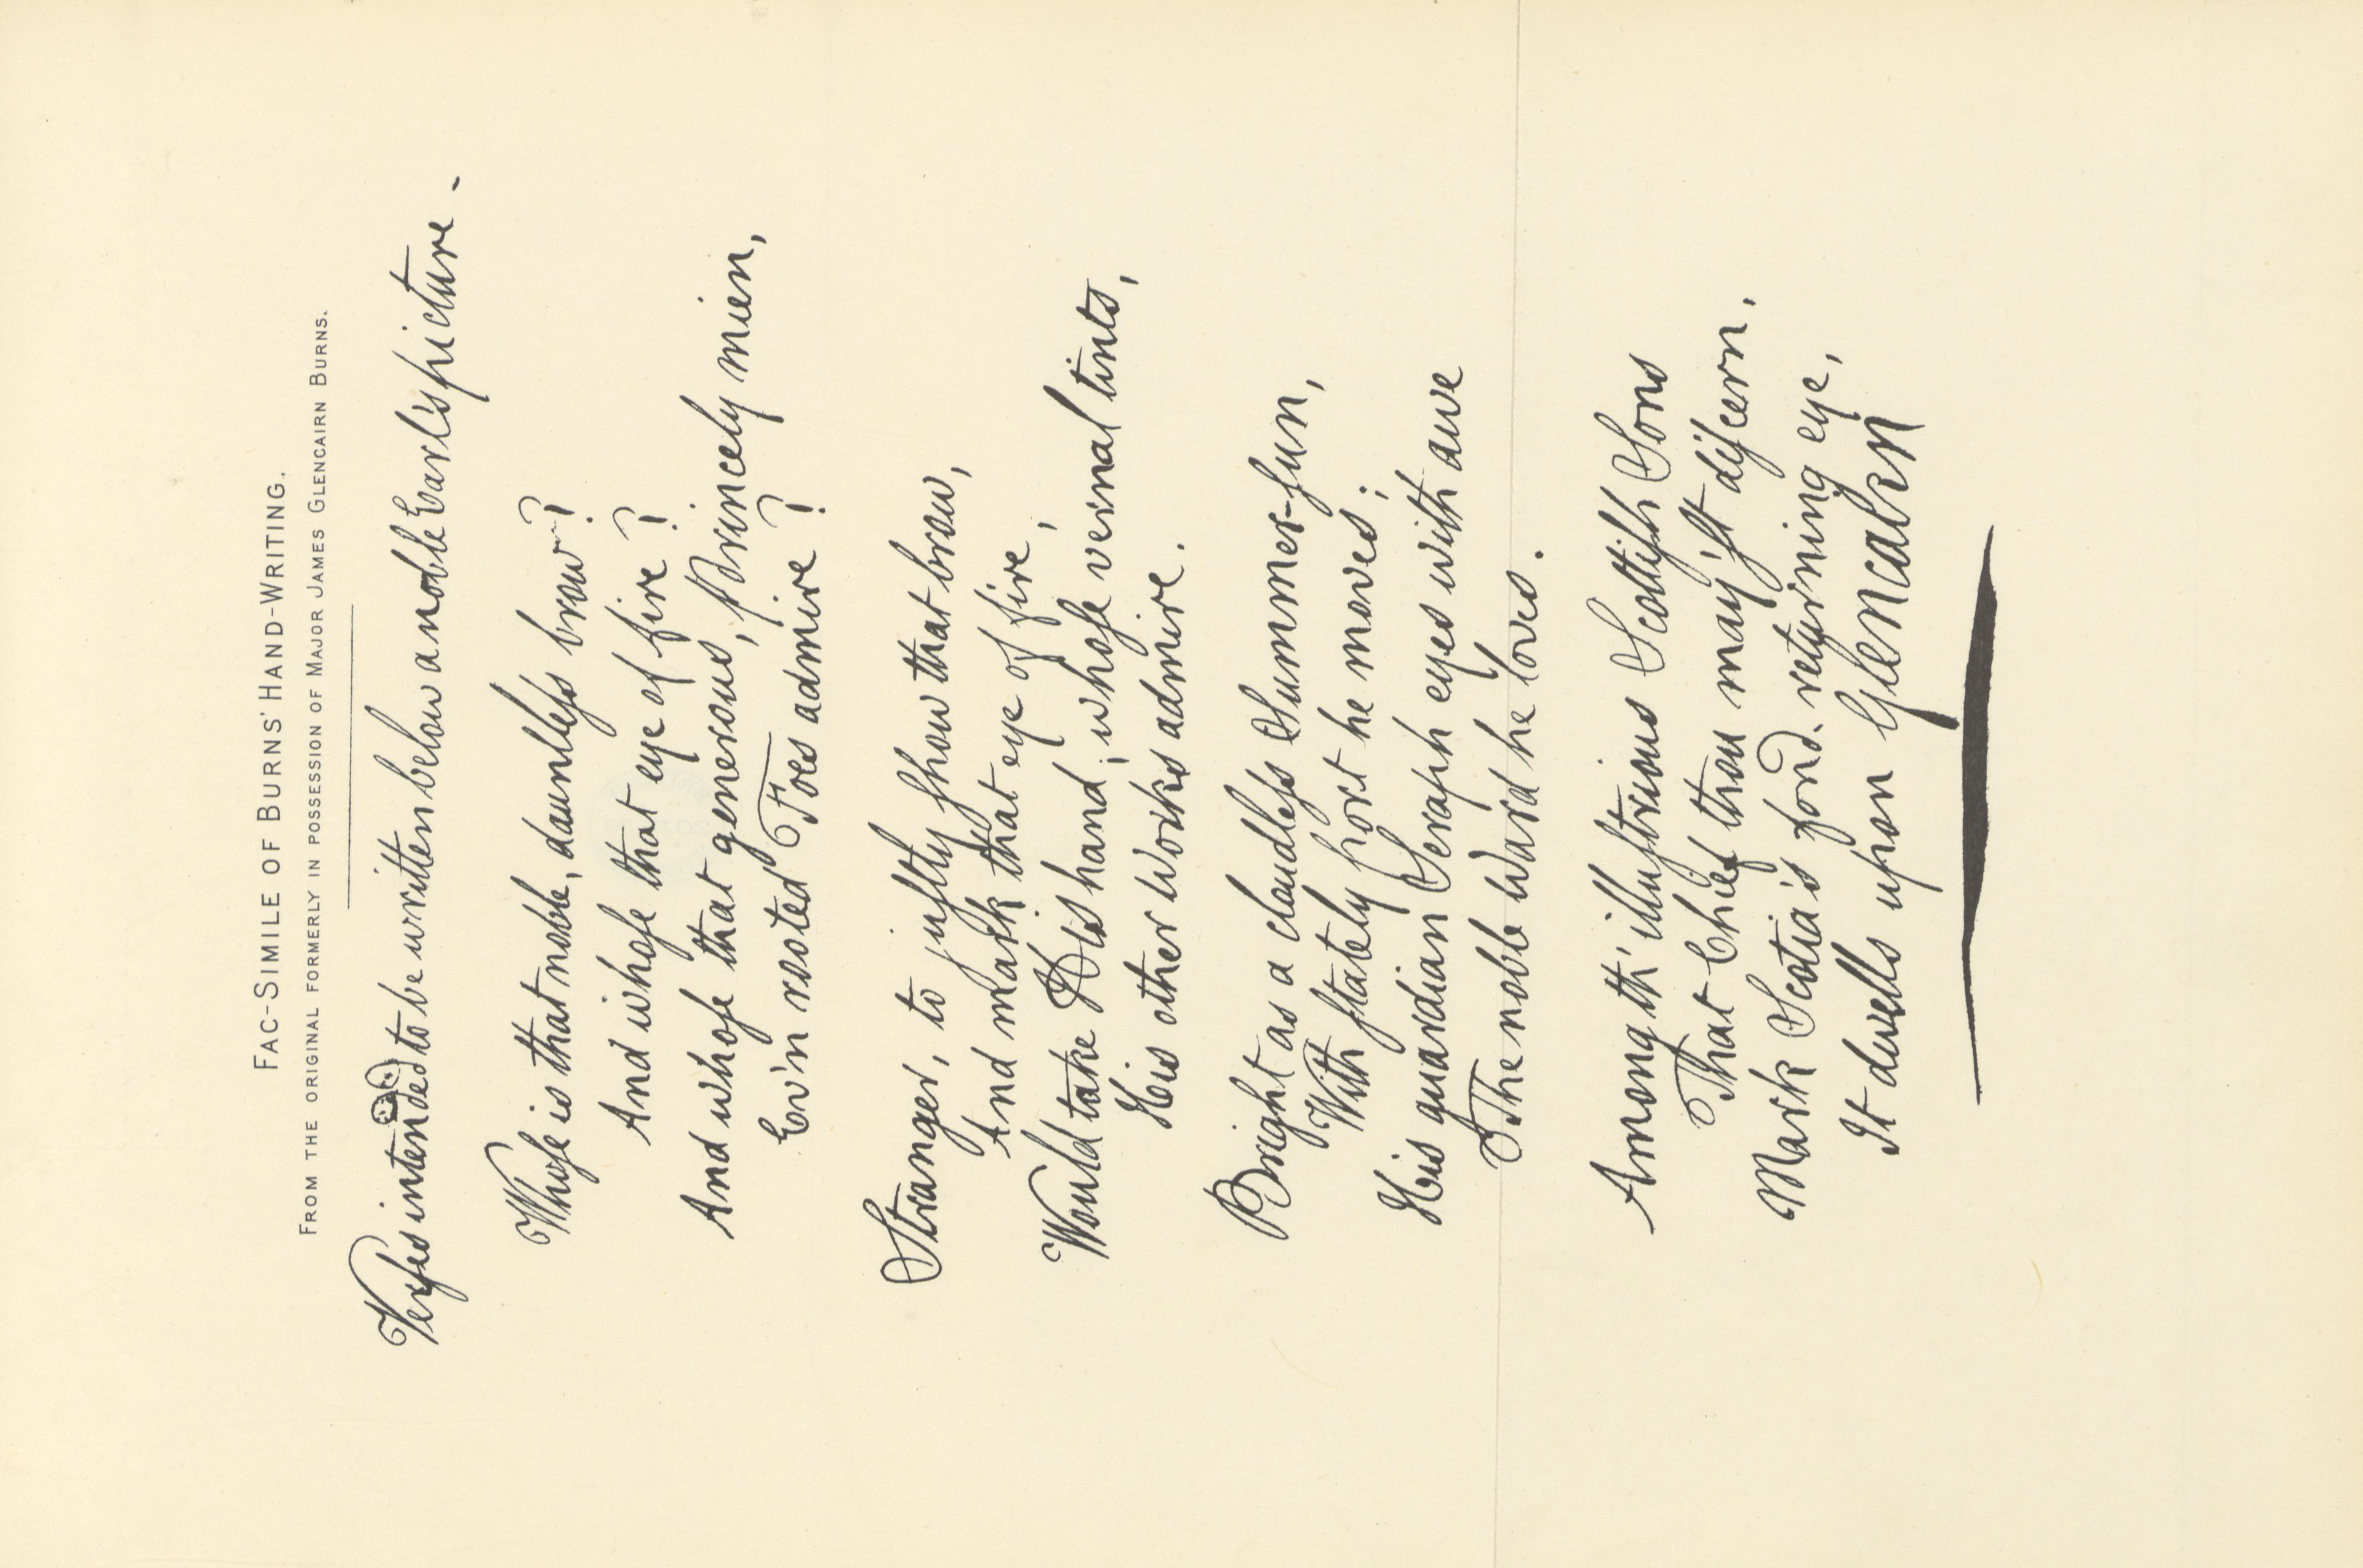 FAC-SIMILE OF BURNS' HAND-WRITING.
FROM THE ORIGINAL FORMERLY IN POSSESSION OF MAJOR JAMES GLENCAIRN BURNS.
Verſes intended to be written below a noble Earl's picture -
Whoſe is that noble, dauntleſs brow?
And whoſe that eye of fire?
And whoſe that generous, Princely mien,
Ev'n rooted Foes admire?
Stranger, to juſtly ſhow that brow,
And mark that eye of fire,
Would take His hand, whoſe vernal tints,
His other Works admire.
Bright as a cloudleſs Summer-ſun,
With ſtately port he moves;
His guardian Seraph eyes with awe
The noble Ward he loves.
Among th' illuſtrious Scottiſh Sons
That Chief thou may'ſt diſcern,
Mark Scotia's fond-returning eye,
It dwells upon Glencairn